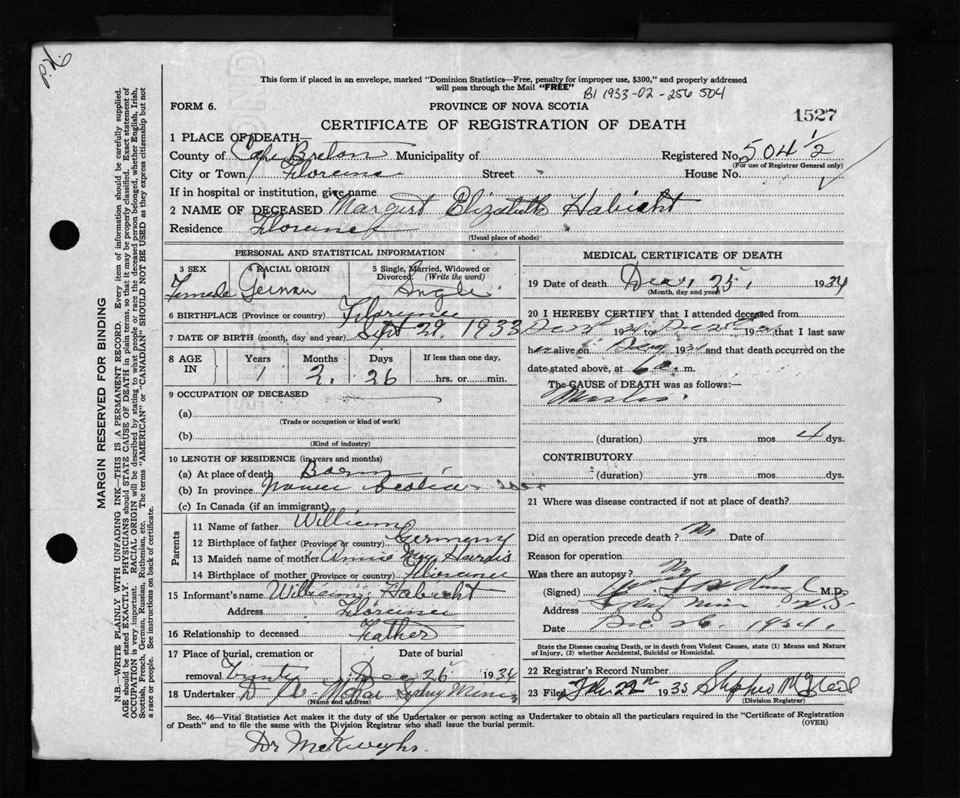 This form if placed in an envelope, marked "Dominion Statistics—Free, penalty for improper use, $300," and properly addressed
will pass through the Mail "FREE"
B1 1933-02-256504
FORM 6.
PROVINCE OF NOVA SCOTIA
1527
CERTIFICATE OF REGISTRATION OF DEATH
1 PLACE OF DEATH—
County of Cape Breton Municipality of Registered No. 504 1/2
(For use of Registrar General only)
City or Town Florence Street House No.
If in hospital or institution, give name
2 NAME OF DECEASED Margert Elizabeth Habicht
Residence Florence
(Usual place of abode)
PERSONAL AND STATISTICAL INFORMATION
3 SEX 4 RACIAL ORIGIN 5 Single, Married, Widowed or Divorced (Write the word)
Female German Single
6 BIRTHPLACE (Province or country) Florence
7 DATE OF BIRTH (month, day and year) Sept 29, 1933
8 AGE IN Years Months Days If less than one day,
1 2 26 hrs. or min.
9 OCCUPATION OF DECEASED
(a)
(Trade or occupation or kind of work)
(b)
(Kind of industry)
10 LENGTH OF RESIDENCE (in years and months)
(a) At place of death Born
(b) In province Scotia
(c) In Canada (if an immigrant)
Parents
11 Name of father William
12 Birthplace of father (Province or country) Germeny
13 Maiden name of mother Annie May
14 Birthplace of mother (Province or country) Florence
15 Informant's name William Habicht
Address Florence
16 Relationship to deceased Father
17 Place of burial, cremation or removal Date of burial
Trinity Dec 26 1934
18 Undertaker Sydney Mines
(Name and address)
MEDICAL CERTIFICATE OF DEATH
19 Date of death Dec, 25, 1934
(Month, day and year)
20 I HEREBY CERTIFY that I attended deceased from
19 to 19 that I last saw
h alive on 19 and that death occurred on the
date stated above, at 6 a. m.
The CAUSE of DEATH was as follows:—
Measles
(duration) yrs mos 4 dys.
CONTRIBUTORY
(duration) yrs mos dys.
21 Where was disease contracted if not at place of death?
Did an operation precede death? No Date of
Reason for operation
Was there an autopsy? No
(Signed) M.D.
Address Sydney Mines N.S.
Date Dec 26, 1934.
State the Disease causing Death, or in Death from Violent Causes, state (1) Means and Nature of Injury, (2) whether Accidental, Suicidal or Homicidal.
22 Registrar's Record Number
23 Filed 22 1935
(Division Registrar)
Sec. 46—Vital Statistics Act makes it the duty of the Undertaker or person acting as Undertaker to obtain all the particulars required in the "Certificate of Registration
of Death" and to file the same with the Division Registrar who shall issue the burial permit. (OVER)
MARGIN RESERVED FOR BINDING
N.B.—WRITE PLAINLY WITH UNFADING INK—THIS IS A PERMANENT RECORD. Every item of information should be carefully supplied.
AGE should be stated EXACTLY. PHYSICIANS should STATE CAUSE OF DEATH in plain terms, so that it may be properly classified. Exact statement of
OCCUPATION is very important. RACIAL ORIGIN will be described by stating to what people or race the deceased person belonged, whether English, Irish,
Scottish, French, German, Russian, Ruthenian, etc. The terms "AMERICAN" or "CANADIAN" SHOULD NOT BE USED as they express citizenship but not
a race or people. See instructions on back of certificate.